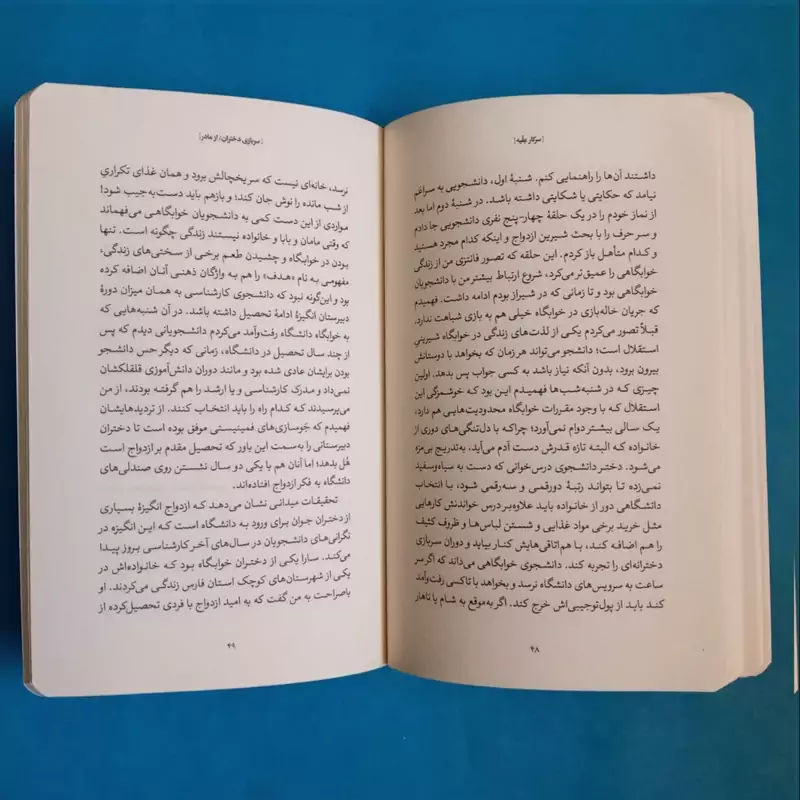 [سرکار علیه]
داشتند آن‌ها را راهنمایی کنم. شنبهٔ اول، دانشجویی به سراغم
نیامد که حکایتی یا شکایتی داشته باشد. در شنبهٔ دوم اما بعد
از نماز خودم را در یک حلقهٔ چهار-پنج نفری دانشجویی جا دادم
و سر حرف را با بحث شیرین ازدواج و اینکه کدام مجرد هستید
و کدام متأهل باز کردم. این حلقه که تصور فانتزی من از زندگی
خوابگاهی را عمیق‌تر می‌کرد، شروع ارتباط بیشتر من با دانشجویان
خوابگاهی بود و تا زمانی که در شیراز بودم ادامه داشت. فهمیدم
که جریان خاله‌بازی در خوابگاه خیلی هم به بازی شباهت ندارد.
قبلاً تصور می‌کردم یکی از لذت‌های زندگی در خوابگاه شیرینیِ
استقلال است؛ دانشجو می‌تواند هر زمان که بخواهد با دوستانش
بیرون برود، بدون آنکه نیاز باشد به کسی جواب پس بدهد. اولین
چیزی که در شنبه‌شب‌ها فهمیدم این بود که خوشمزگی این
استقلال که با وجود مقررات خوابگاه محدودیت‌هایی هم دارد،
یک سالی بیشتر دوام نمی‌آورد؛ چراکه با دل‌تنگی‌های دوری از
خانواده که البته تازه قدرش دست آدم می‌آید، به‌تدریج بی‌مزه
می‌شود. دختر دانشجوی درس‌خوانی که دست به سیاه‌وسفید
نمی‌زده تا بتواند رتبهٔ دورقمی و سه‌رقمی شود، با انتخاب
دانشگاهی دور از خانواده باید علاوه‌بر درس خواندنش کارهایی
مثل خرید برخی مواد غذایی و شستن لباس‌ها و ظروف کثیف
را هم اضافه کند، با هم‌اتاقی‌هایش کنار بیاید و دوران سربازی
دخترانه‌ای را تجربه کند. دانشجوی خوابگاهی می‌داند که اگر سر
ساعت به سرویس‌های دانشگاه نرسد و بخواهد با تاکسی رفت‌وآمد
کند باید از پول‌توجیبی‌اش خرج کند. اگر به‌موقع به شام یا ناهار
۴۸
[سربازی دختران، از مادر]
نرسد، خانه‌ای نیست که سر یخچالش برود و همان غذای تکراریِ
از شب مانده را نوش جان کند؛ و بازهم باید دست‌به‌جیب شود!
مواردی از این دست کمی به دانشجویان خوابگاهی می‌فهماند
که وقتی مامان و بابا و خانواده نیستند زندگی چگونه است. تنها
بودن در خوابگاه و چشیدن طعم برخی از سختی‌های زندگی،
مفهومی به نام «هدف» را هم به واژگان ذهنی آنان اضافه کرده
بود و این‌گونه نبود که دانشجوی کارشناسی به همان میزان دورهٔ
دبیرستان انگیزهٔ ادامهٔ تحصیل داشته باشد. در آن شنبه‌هایی که
به خوابگاه دانشگاه رفت‌وآمد می‌کردم دانشجویانی دیدم که پس
از چند سال تحصیل در دانشگاه، زمانی که دیگر حس دانشجو
بودن برایشان عادی شده بود و مانند دوران دانش‌آموزی قلقلکشان
نمی‌داد و مدرک کارشناسی و یا ارشد را هم گرفته بودند، از من
می‌پرسیدند که کدام راه را باید انتخاب کنند. از تردیدهایشان
فهمیدم که جَوسازی‌های فمینیستی موفق بوده است تا دختران
دبیرستانی را به‌سمت این باور که تحصیل مقدم بر ازدواج است
هُل بدهد؛ اما آنان هم با یکی دو سال نشستن روی صندلی‌های
دانشگاه به فکر ازدواج افتاده‌اند.
تحقیقات میدانی نشان می‌دهد که ازدواج انگیزهٔ بسیاری
از دختران جوان برای ورود به دانشگاه است که این انگیزه در
نگرانی‌های دانشجویان در سال‌های آخر کارشناسی بروز پیدا
می‌کند. سارا یکی از دختران خوابگاه بود که خانواده‌اش در
یکی از شهرستان‌های کوچک استان فارس زندگی می‌کردند. او
باصراحت به من گفت که به امید ازدواج با فردی تحصیل‌کرده از
۴۹